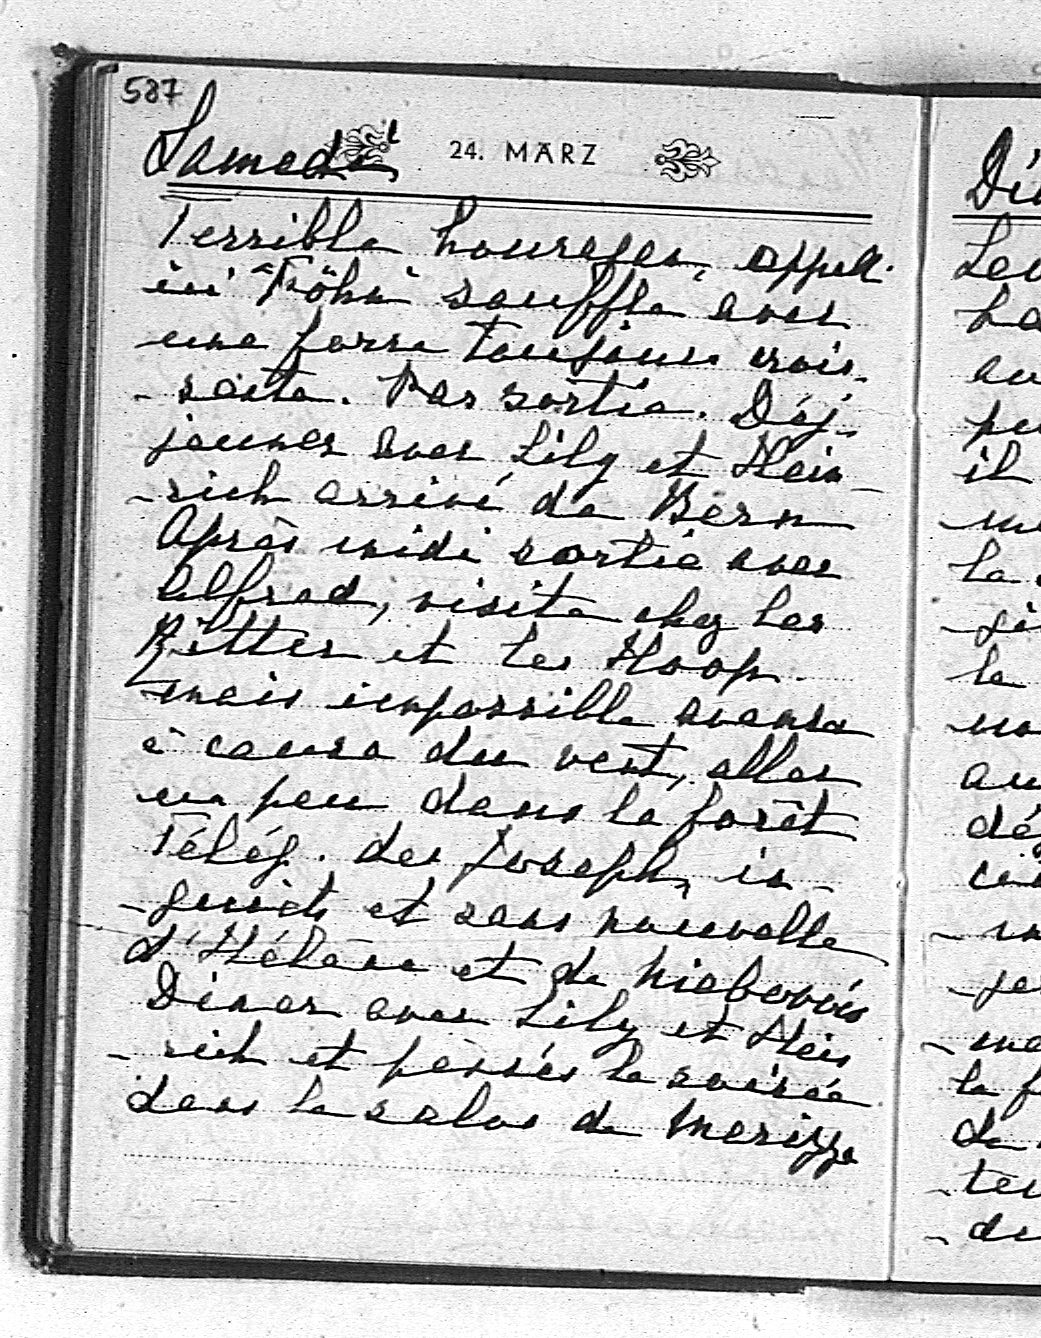 587
Samedi 24. MÄRZ
Terrible houragan, appelé
ici "Föhn" souffle avec
une forse toujours crois-
-sante. Pas sortie. Déj-
jeuner avec Lily et Hein-
-rich arrivé de Bern
Après midi sortie avec
Alfred, visite chez les
Ritter et les Hoop.
mais impossible avanse
à cause du vent, aller
un peu dans la forêt
Téléf. des Joseph, in-
-quiets et sans nouvelle
d'Hélène et de Nieborów
Diner avec Lily et Hein
-rich et passés la soirée
dans le salon de
Di
la
il
la
la
au